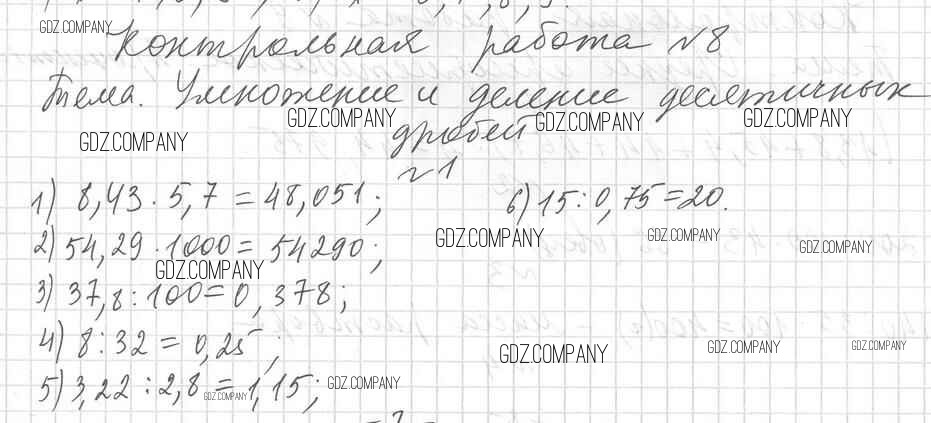 GDZ.COMPANY
Контрольная работа №8
Тема. Умножение и деление десятичных
GDZ.COMPANY GDZ.COMPANY GDZ.COMPANY
дробей
GDZ.COMPANY
№1
1) 8,43 · 5,7 = 48,051; 6) 15 : 0,75 = 20.
2) 54,29 · 1000 = 54290;
GDZ.COMPANY GDZ.COMPANY GDZ.COMPANY
GDZ.COMPANY
3) 37,8 : 100 = 0,378;
4) 8 : 32 = 0,25;
GDZ.COMPANY GDZ.COMPANY GDZ.COMPANY
5) 3,22 : 2,8 = 1,15;
GDZ.COMPANY GDZ.COMPANY